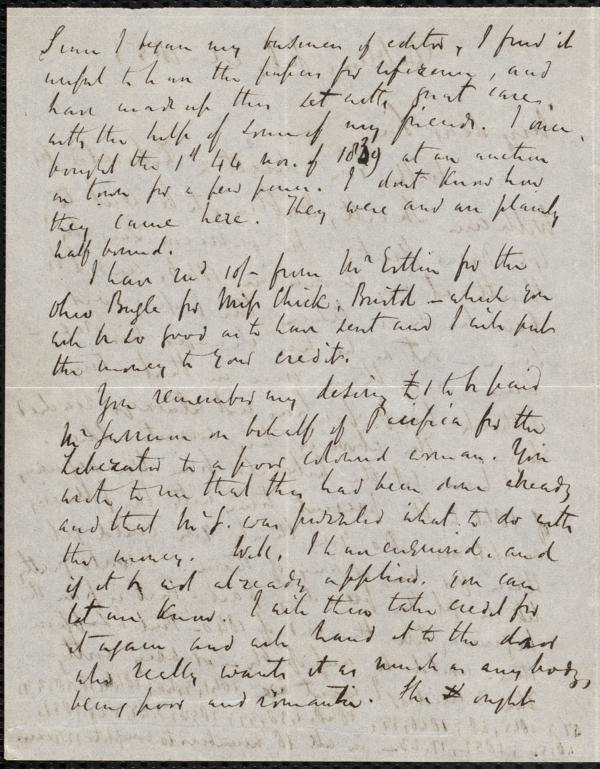 Since I began my business of editor, I find it
useful to have the papers for reference, and
have made up this set with great care,
with the help of some of my friends. I once
bought the 1st 44 nos. of 1839 at an auction
in town for a few pence. I don't know how
they came here. They were and are plainly
half bound.
I have recd 10/- from Mr Estlin for the
Ohio Bugle for Miss Chick, Bristol - which you
will be so good as to have sent and I will put
the money to your credit.
You remember my desiring £1 to be paid
Mr Garrison on behalf of Pacifica for the
Liberator to a poor colored woman. You
wrote to me that this had been done already
and that Mr G. was puzzled what to do with
the money. Well, I have enquired, and
if it be not already applied, you can
let me know. I will then take credit for
it again and will hand it to the donor
who really wants it as much as any body,
being poor and romantic. She ought